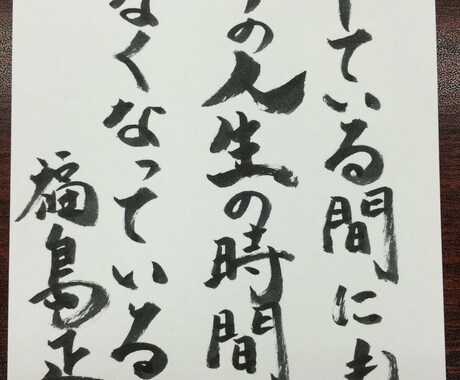 ている間にも
の人生の時間
なくなっている
福島正